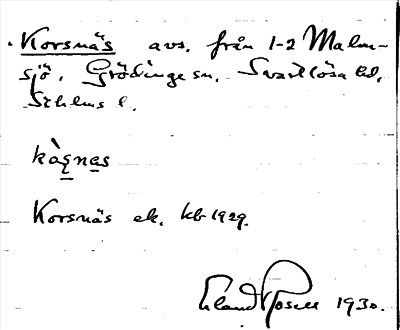 Korsnäs avs. från 1-2 Malm-
sjö, Grödinge sn. Svartlösa hd.
Sthlms l.
kàşnas
Korsnäs ek. kb 1929.
Erland Rosell 1930.